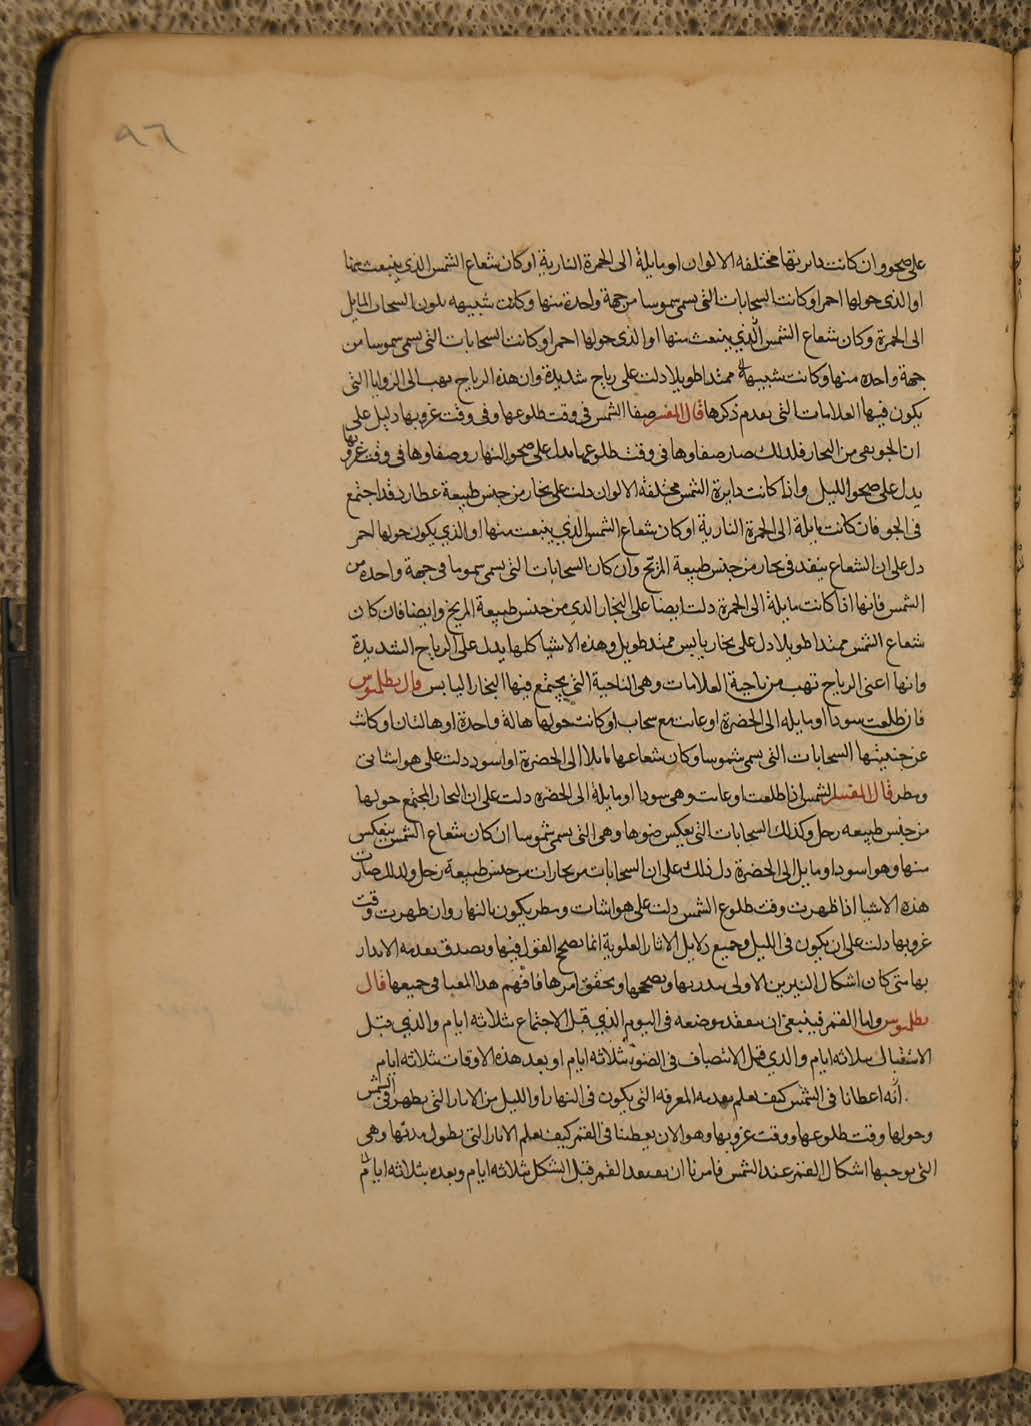 ٩٦
على صحو وان كانت دايرتها مختلفه الالوان او مايلة الى الحمرة النارية او كان شعاع الشمس الذي ينبعث منها
او الذى حولها احمر او كانت السحابات التى يسمى سموسا من جهة واحدة منها وكانت شبيهه بلون السحاب المايل
الى الحمرة وكان شعاع الشمس الذي ينبعث منها او الذى حولها احمر او كانت السحابات التى يسمى سموسا من
جهة واحده منها وكانت شبيها ممتدا طويلا دلت على رياح شديدة وان هذه الرياح تهب الى الزوايا التى
يكون فيها العلامات التى تقدم ذكرها قال المفسر صفا الشمس فى وقت طلوعها وفى وقت غروبها دليل على
ان الجو نقى من البخار فلذلك صار صفاوها فى وقت طلوعها يدل على صحو النهار وصفاوها فى وقت غروبها
يدل على صحو الليل واذا كانت دايرة الشمس مختلفة الالوان دلت على بخار من جنس طبيعة عطارد قد اجتمع
فى الجو فان كانت مايلة الى الحمرة النارية او كان شعاع الشمس الذي ينبعث منها او الذي يكون حولها احمر
دل على ان الشعاع ينفد فى بخار من جنس طبيعة المريخ وان كان السحابات التى يسمى سموما فى جهة واحده من
الشمس فانها اذا كانت مايلة الى الحمرة دلت ايضا على البخار الذي من جنس طبيعة المريخ وايضا فان كان
شعاع الشمس ممتدا طويلا دل على بخار يابس ممتد طويل وهذه الاشيا كلها يدل على الرياح الشديدة
وانها اعنى الرياح تهب من ناحية العلامات وهى الناحية التى يجتمع فيها البخار اليابس قال بطلميوس
فان طلعت سودا او مايله الى الخضرة او غابت مع سحاب او كانت حولها هالة واحدة او هالتان او كانت
عن جنبيتها السحابات التى يسمى شموسا وكان شعاعها مايلا الى الخضرة او اسود دلت على هوا شاتى
ومطر قال المفسر الشمس اذا طلعت او غابت وهى سودا او مايلة الى الخضره دلت على ان البخار المجتمع حولها
من جنس طبيعه زحل وكذلك السحابات التى يعكس ضوها وهى التى يسمى شموسا ان كان شعاع الشمس ينعكس
منها وهو اسود او مايل الى الخضرة دل ذلك على ان السحابات من بخارات من جنس طبيعة زحل ولذلك صارت
هذه الاشيا اذا ظهرت وقت طلوع الشمس دلت على هوا شات ومطر يكون بالنهار وان ظهرت وقت
غروبها دلت على ان يكون فى الليل وجميع دلايل الاثار العلوية انما يصح القول فيها ويصدق تقدمه الانذار
بها متى كان اشكال النيرين الاولى وتصححها ويحقق امرها فافهم هذا المعنا فى جميعها قال
بطلميوس واما القمر فينبغى ان يتفقد موضعه فى اليوم الذي قبل الاجتماع بثلاثه ايام والذي قبل
الاستقبال بثلاثه ايام والذي قبل الانتصاف فى الضو بثلاثه ايام او بعد هذه الاوقات بثلاثه ايام
انه اعطانا فى الشمس كيف يعلم تقدمه المعرفه التى يكون فى النهار او الليل من الاثار التى يظهر فى الشمس
وحولها وقت طلوعها ووقت غروبها وهو الان يعطينا فى القمر كيف يعلم الاثار التى يطول مدتها وهى
التى يوجبها اشكال القمر عند الشمس فامرنا ان يتفقد القمر قبل الشكل بثلاثه ايام وبعده بثلاثه ايام